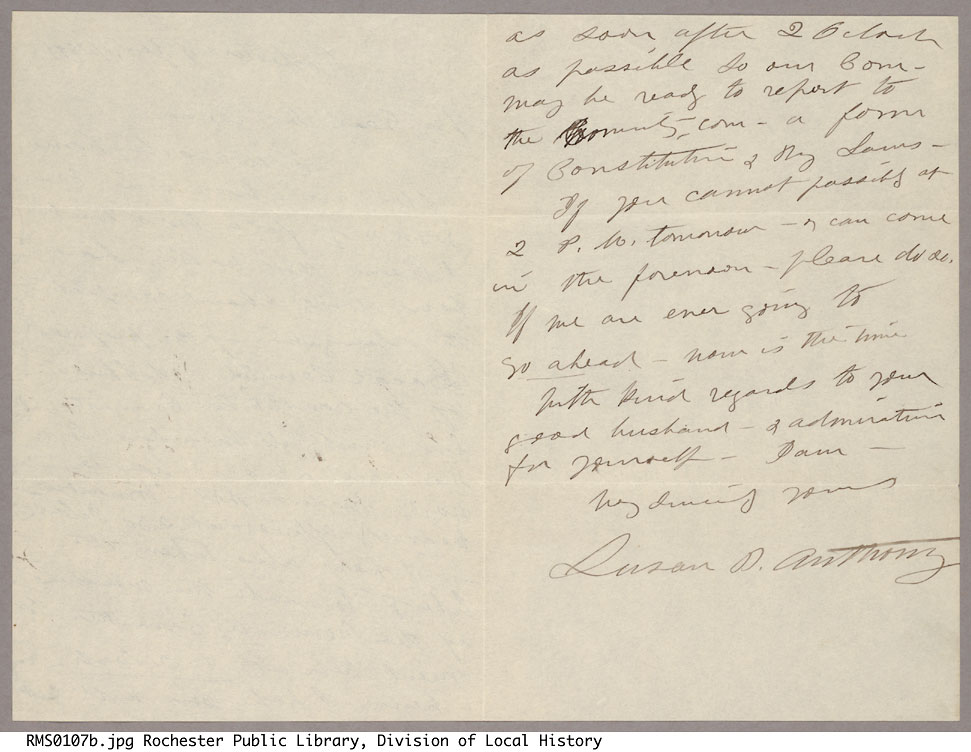 as soon after 2 Oclock
as possible so our Com-
may be ready to report to
the com- a form
of Constitution & By Laws-
If you cannot possibly at
2 P. M. tomorrow - & can come
in the forenoon - please do so.
If we are ever going to
go ahead - now is the time
With kind regards to your
good husband - & admiration
for yourself - I am -
Very Sincerely yours
Susan B. Anthony
RMS0107b.jpg Rochester Public Library, Division of Local History